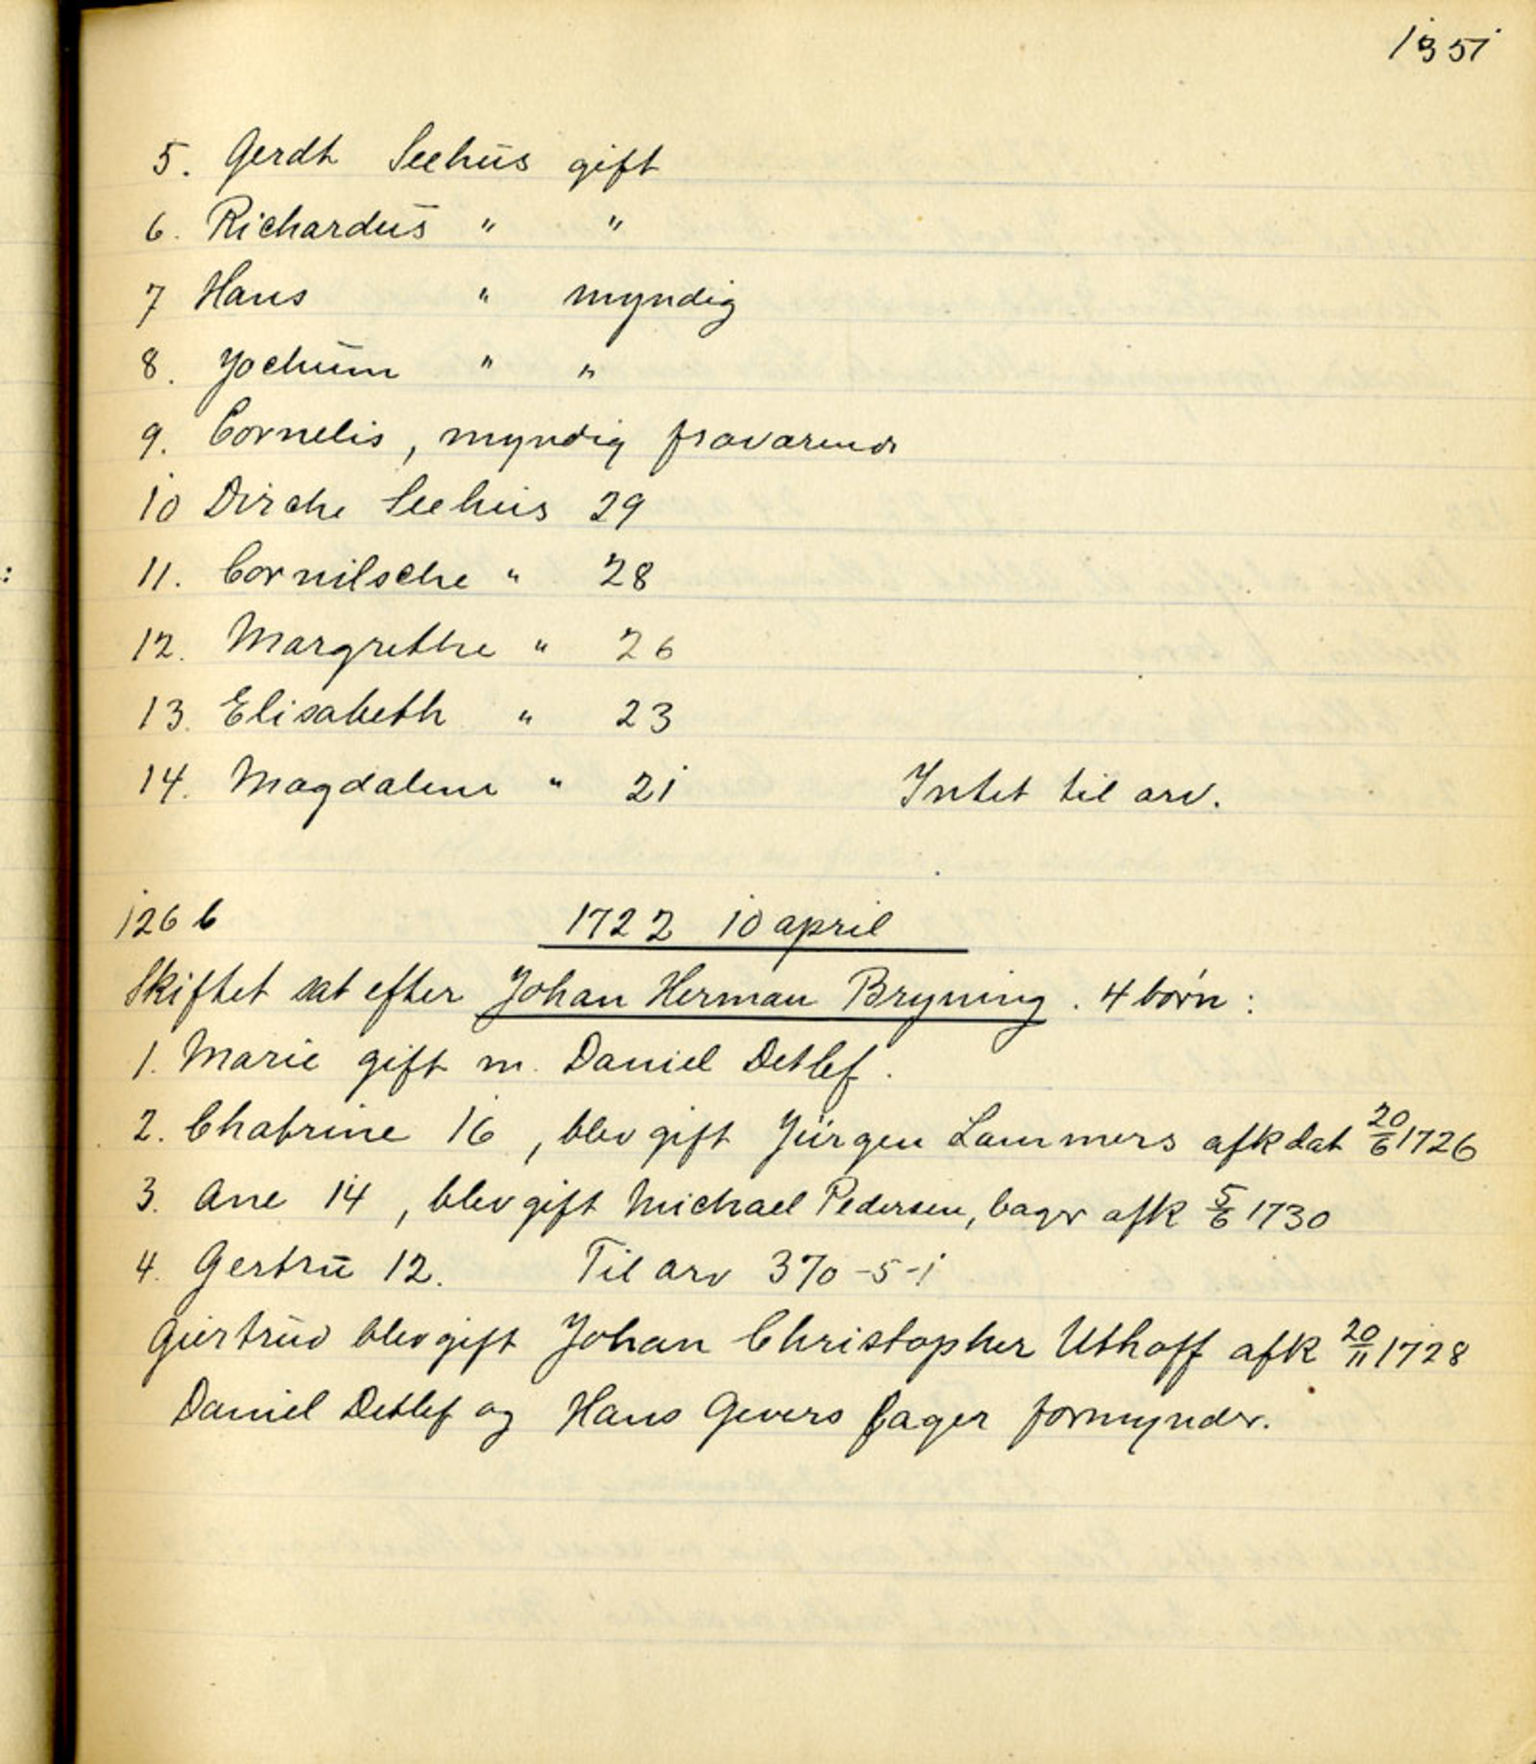 1351
5. Gerdt Seehus gift
6. Richardus " "
7 Hans " myndig
8. Jochum " "
9. Cornelis, myndig fraværende
10 Dirche Seehus 29
11. Cornilsche " 28
12. Margrethe " 26
13. Elisabeth " 23
14. Magdalene " 21 Intet til arv.
126 b 1722 10 april
Skiftet sat efter Johan Herman Bryning. 4 børn:
1. Marie gift m. Daniel Detlef.
2. Chatrine 16, blev gift Jürgen Lammers afkdat 20/6 1726
3. Ane 14, blev gift Michael Pedersen, bager afk 5/6 1730
4. Gertru 12. Til arv 370-5-1
Giertrud blev gift Johan Christopher Uthoff afk 20/11 1728
Daniel Detlef og Hans Gevers bager formynder.
: